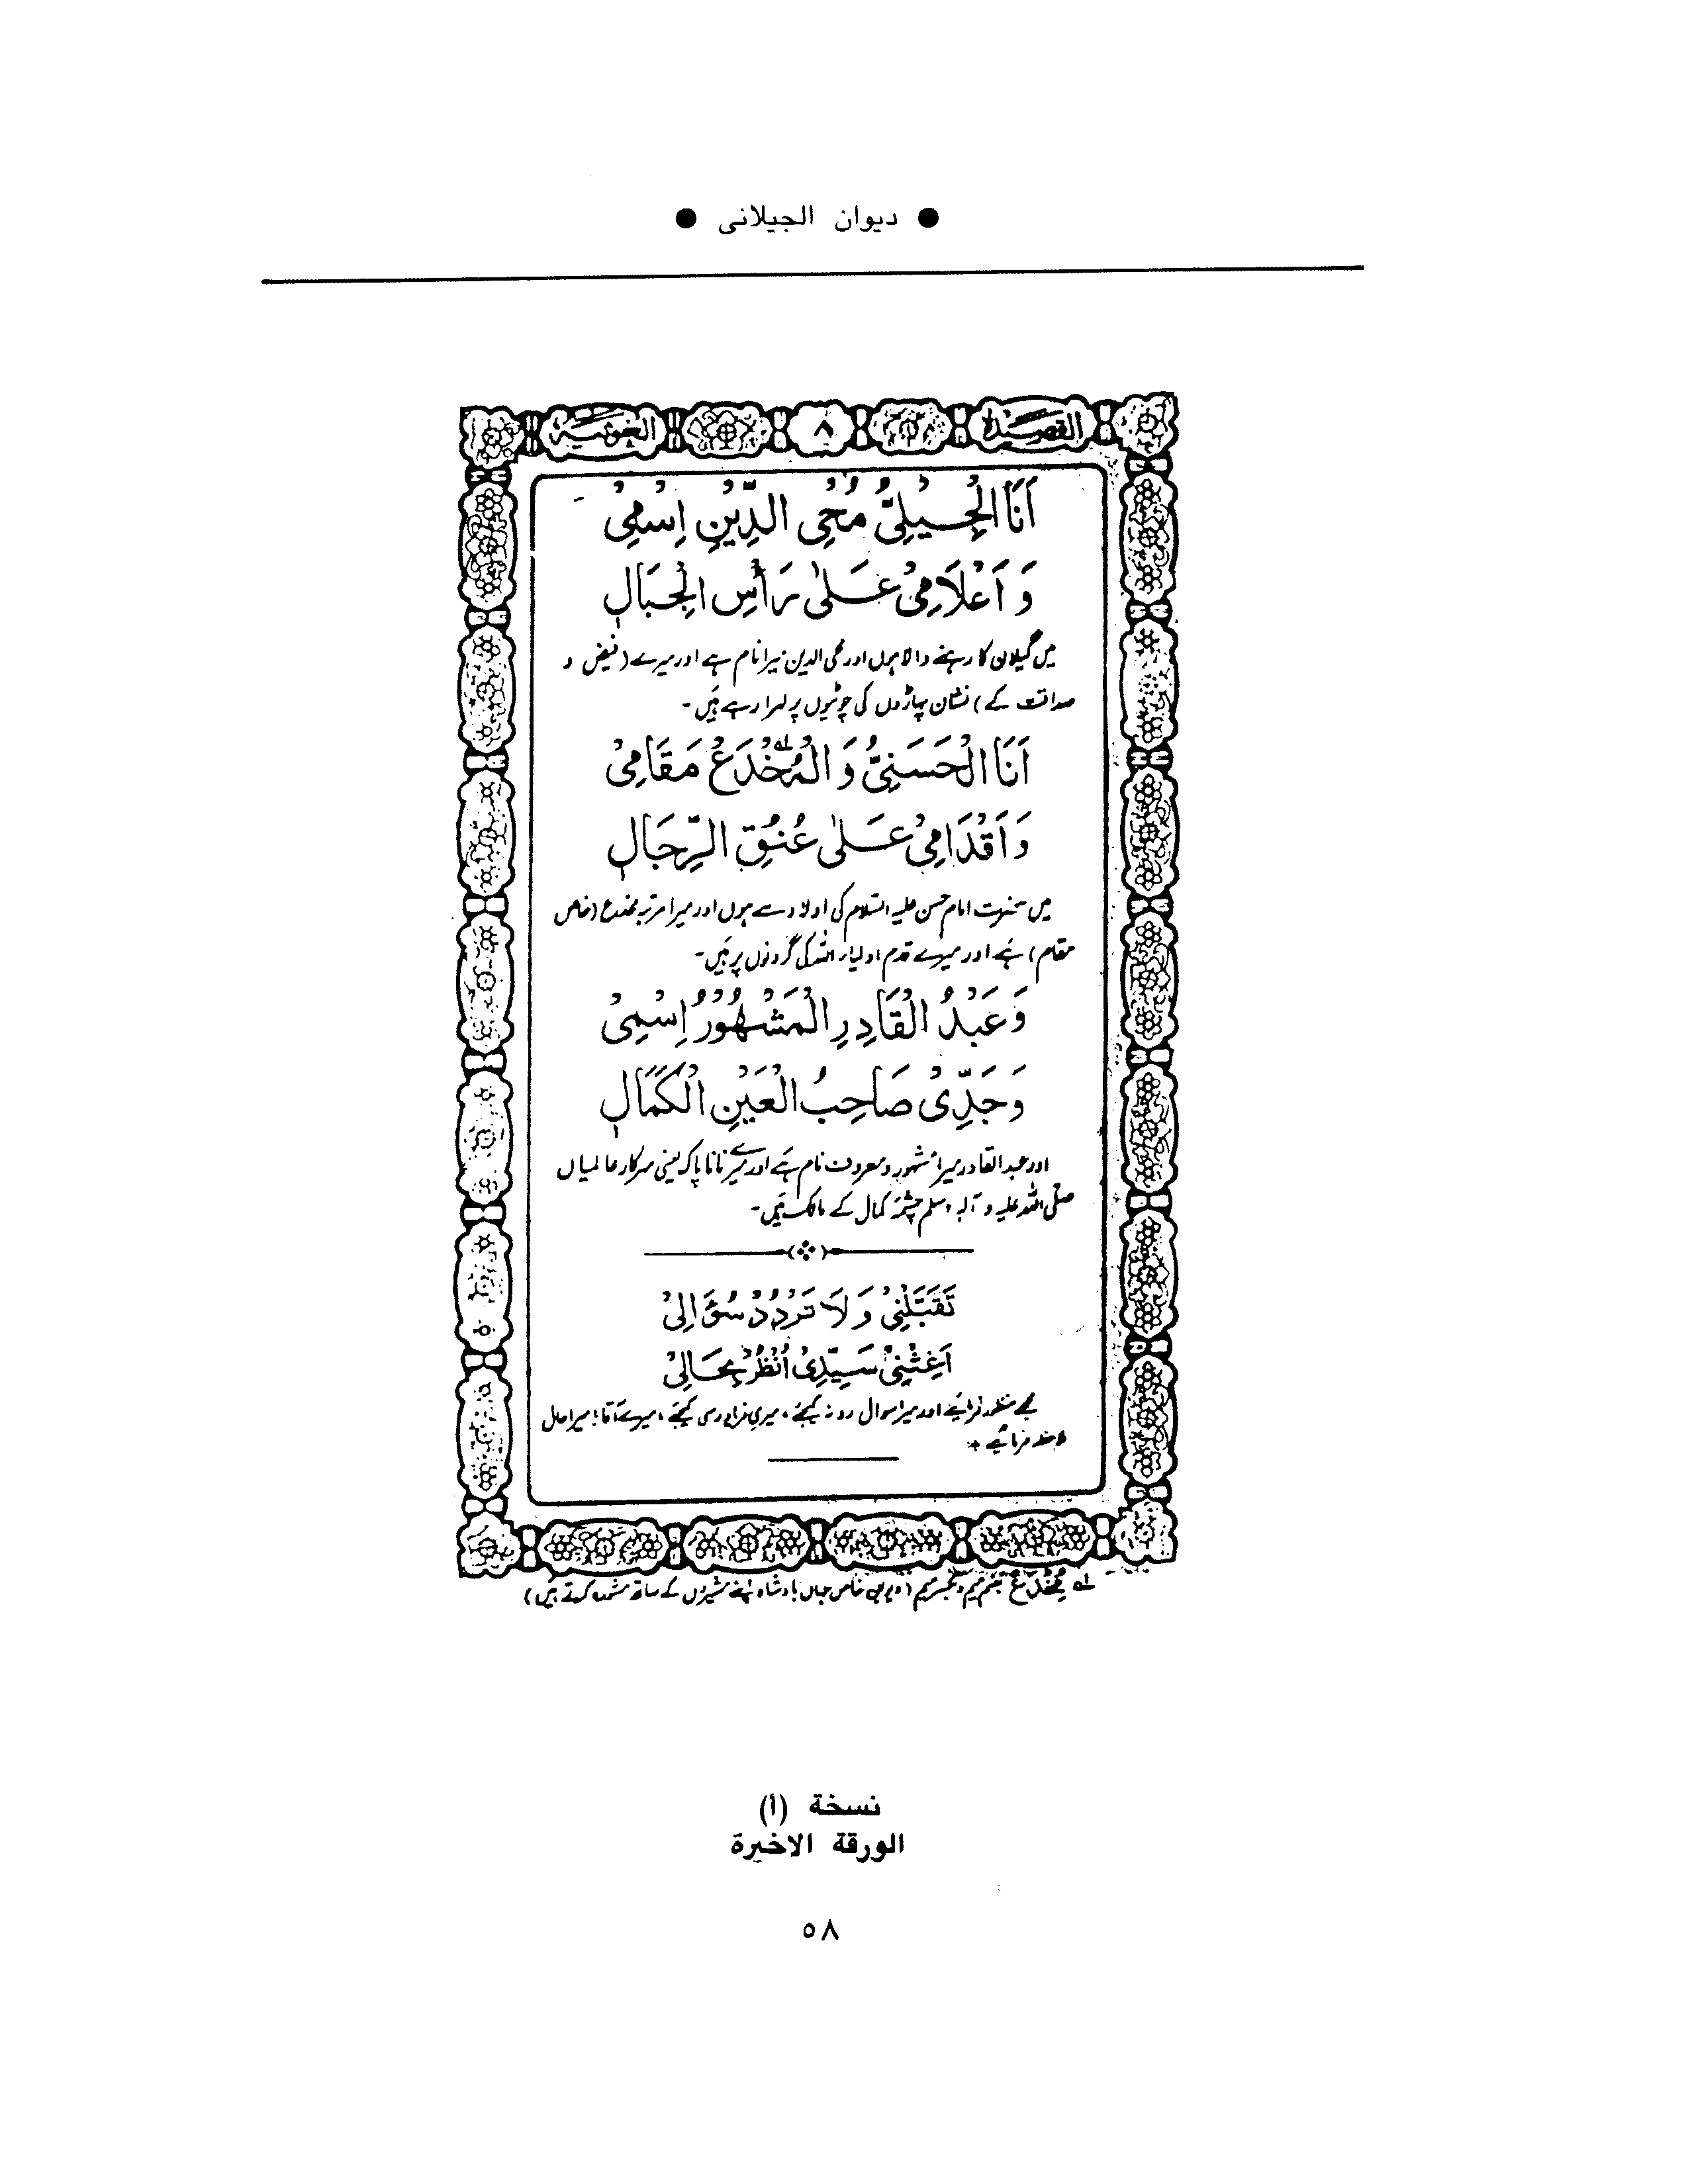 ● ديوان الجيلانى ●
القصيدة ٨ الغوثية
اَنَا الْجِيْلِىُّ مُحْىِ الدِّيْنِ اِسْمِىْ
وَ اَعْلَامِىْ عَلٰى رَأْسِ الْجِبَالِ
میں گیلان کا رہنے والا ہوں اور محی الدین میرا نام ہے اور میرے (فیض و
صداقت کے) نشان پہاڑوں کی چوٹیوں پر لہرا رہے ہیں۔
اَنَا الْحَسَنِىُّ وَالْمُخْدَعْ مَقَامِىْ
وَاَقْدَامِىْ عَلٰى عُنُقِ الرِّجَالِ
میں حضرت امام حسن علیہ السلام کی اولاد سے ہوں اور میرا مرتبہ مخدع (خاص
مقام) ہے اور میرے قدم اولیاء اللہ کی گردنوں پر ہیں۔
وَعَبْدُ الْقَادِرِ الْمَشْهُوْرُ اِسْمِىْ
وَجَدِّىْ صَاحِبُ الْعَيْنِ الْكَمَالِ
اور عبد القادر میرا مشہور و معروف نام ہے اور میرے نانا پاک یعنی سرکار عالمیاں
صلی اللہ علیہ و آلہ وسلم چشمۂ کمال کے مالک ہیں۔
تَقَبَّلْنِىْ وَلَا تَرْدُدْ سُؤَالِىْ
اَغِثْنِىْ سَيِّدِىْ اُنْظُرْ بِحَالِىْ
مجھے منظور فرمائیے اور میرا سوال رد نہ کیجئے، میری فریاد رسی کیجئے، میرے آقا! میرا حال
ملاحظہ فرمائیے
لہ مُخْدَعْ بضم میم و بکسر میم (وہ خاص جہاں بادشاہ اپنے مشیروں کے ساتھ مشورہ کرتے ہیں)
نسخة (أ)
الورقة الاخيرة
٥٨